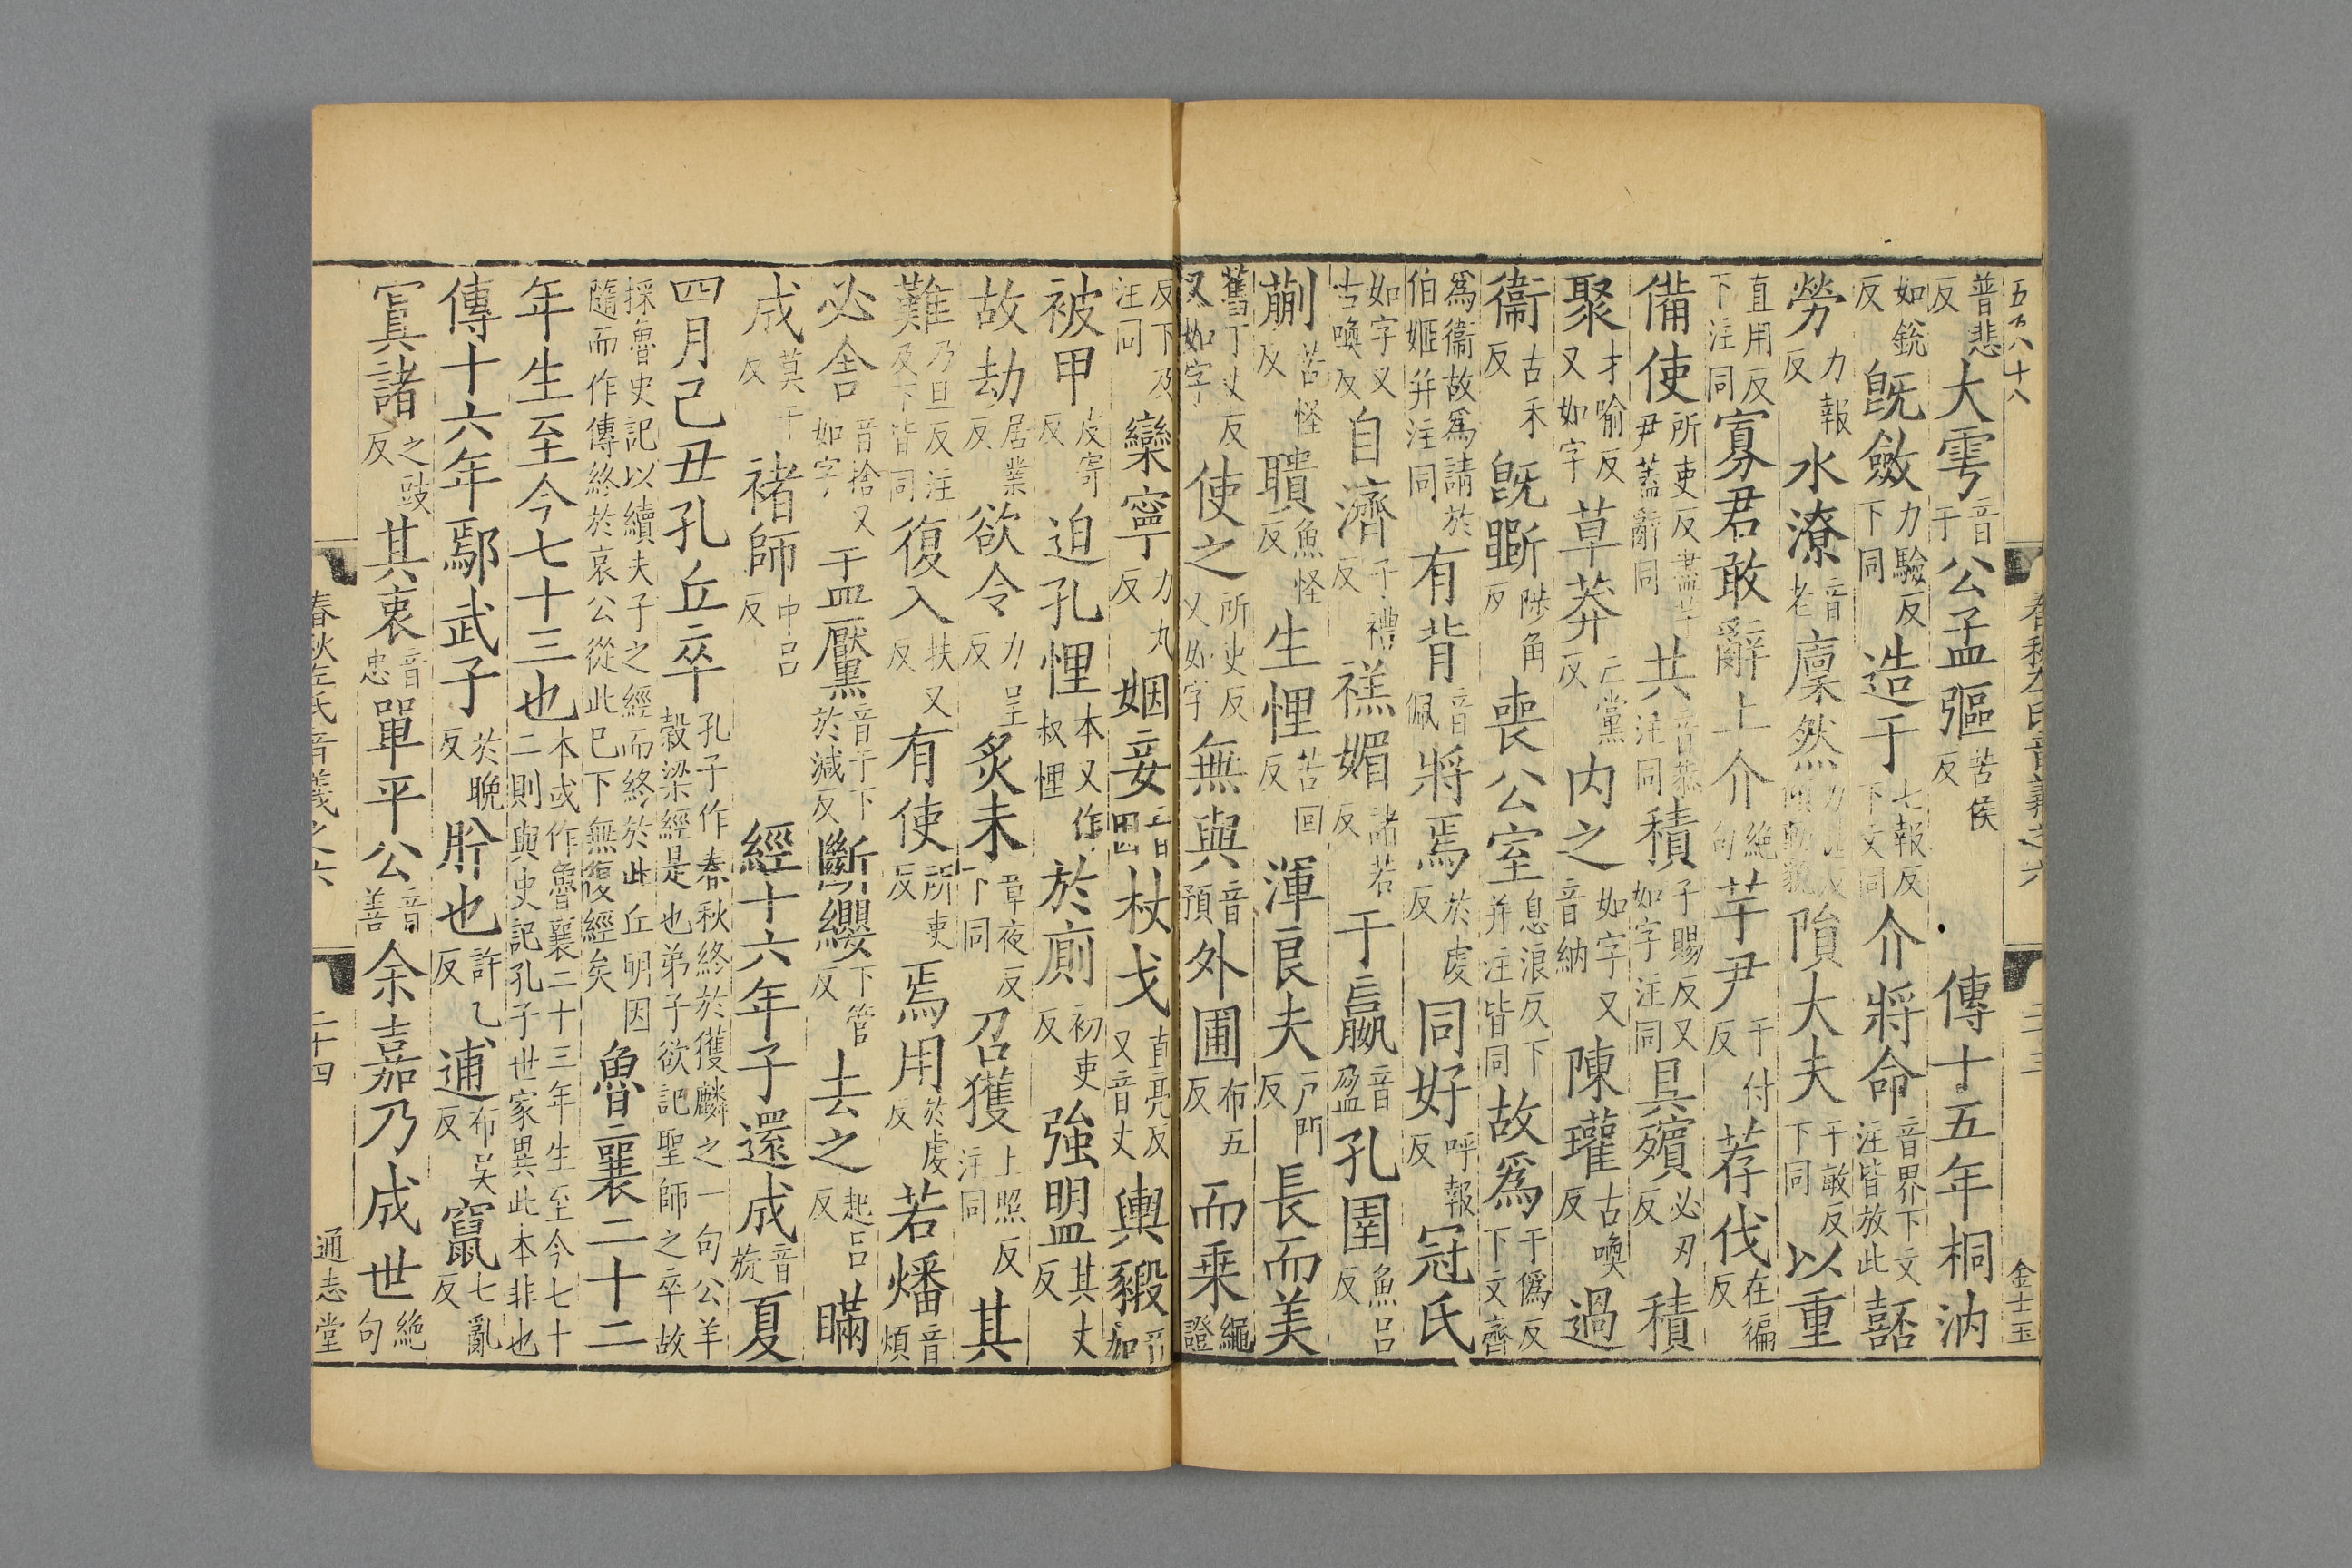 五百八十八 春秋左氏音義之六 二十三 金士玉
普悲反大雩音于公孟彄苦侯反傳十五年桐汭
如銳反既斂力驗反下同造于七報反下文同介將命音界下文注皆放此嚭
勞力報反水潦音老廩然力甚反傾動貌隕大夫于敏反下同以重
直用反下注同寡君敢辭上介絕句芋尹于付反荐伐在徧反
備使所吏反盡芋尹蓋辭同共音恭注同積子賜反又如字注同具殯必刃反積
聚才喻反又如字草莽亡黨反内之如字又音納陳瓘古喚反過
衞古禾反既斵陟角反喪公室息浪反下并注皆同故爲于僞反下文齊
爲衞故爲請於伯姬并注同有背音佩將焉於虔反同好呼報反冠氏
如字又古喚反自濟子禮反禚媚諸若反于嬴音盈孔圉魚呂反
蒯苦怪反聵魚怪反生悝苦回反渾良夫戶門反長而美
舊丁丈反又如字使之所吏反又如字無與音預外圃布五反而乗繩證
反下及注同欒寧力丸反姻妾音因杖戈直亮反又音丈輿豭音加
被甲皮寄反迫孔悝本又作叔悝於廁初吏反強盟其丈反
故劫居業反欲令力呈反炙未章夜反下同召獲上照反注同其
難乃旦反注及下皆同復入扶又反有使所吏反焉用於虔反若燔音煩
必舍音捨又如字盂黶音于下於減反斷纓下管反去之起呂反瞞
成莫干反褚師中呂反經十六年子還成音旋夏
四月己丑孔丘卒孔子作春秋終於獲麟之一句公羊穀梁經是也弟子欲記聖師之卒故
採魯史記以續夫子之經而終於此丘明因隨而作傳終於哀公從此巳下無復經矣魯襄二十二
年生至今七十三也本或作魯襄二十三年生至今七十二則與史記孔子世家異此本非也
傳十六年鄢武子於晚反肸也許乙反逋布吴反竄七亂反
寘諸之豉反其衷音忠單平公音善余嘉乃成世絕句
春秋左氏音義之六 二十四 通志堂